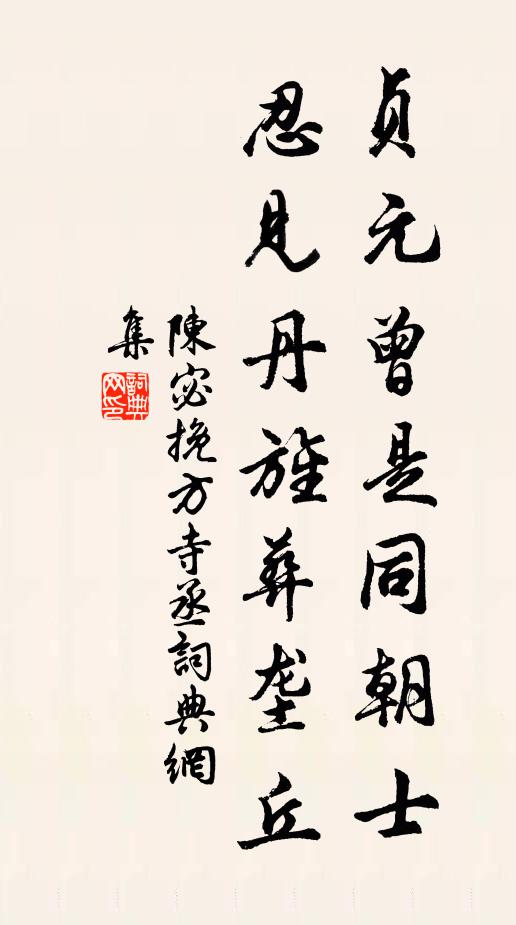 貞元曾是同朝士
忍見丹旌葬壟丘
陳宓挽方寺丞詞典網
集
詞典网印